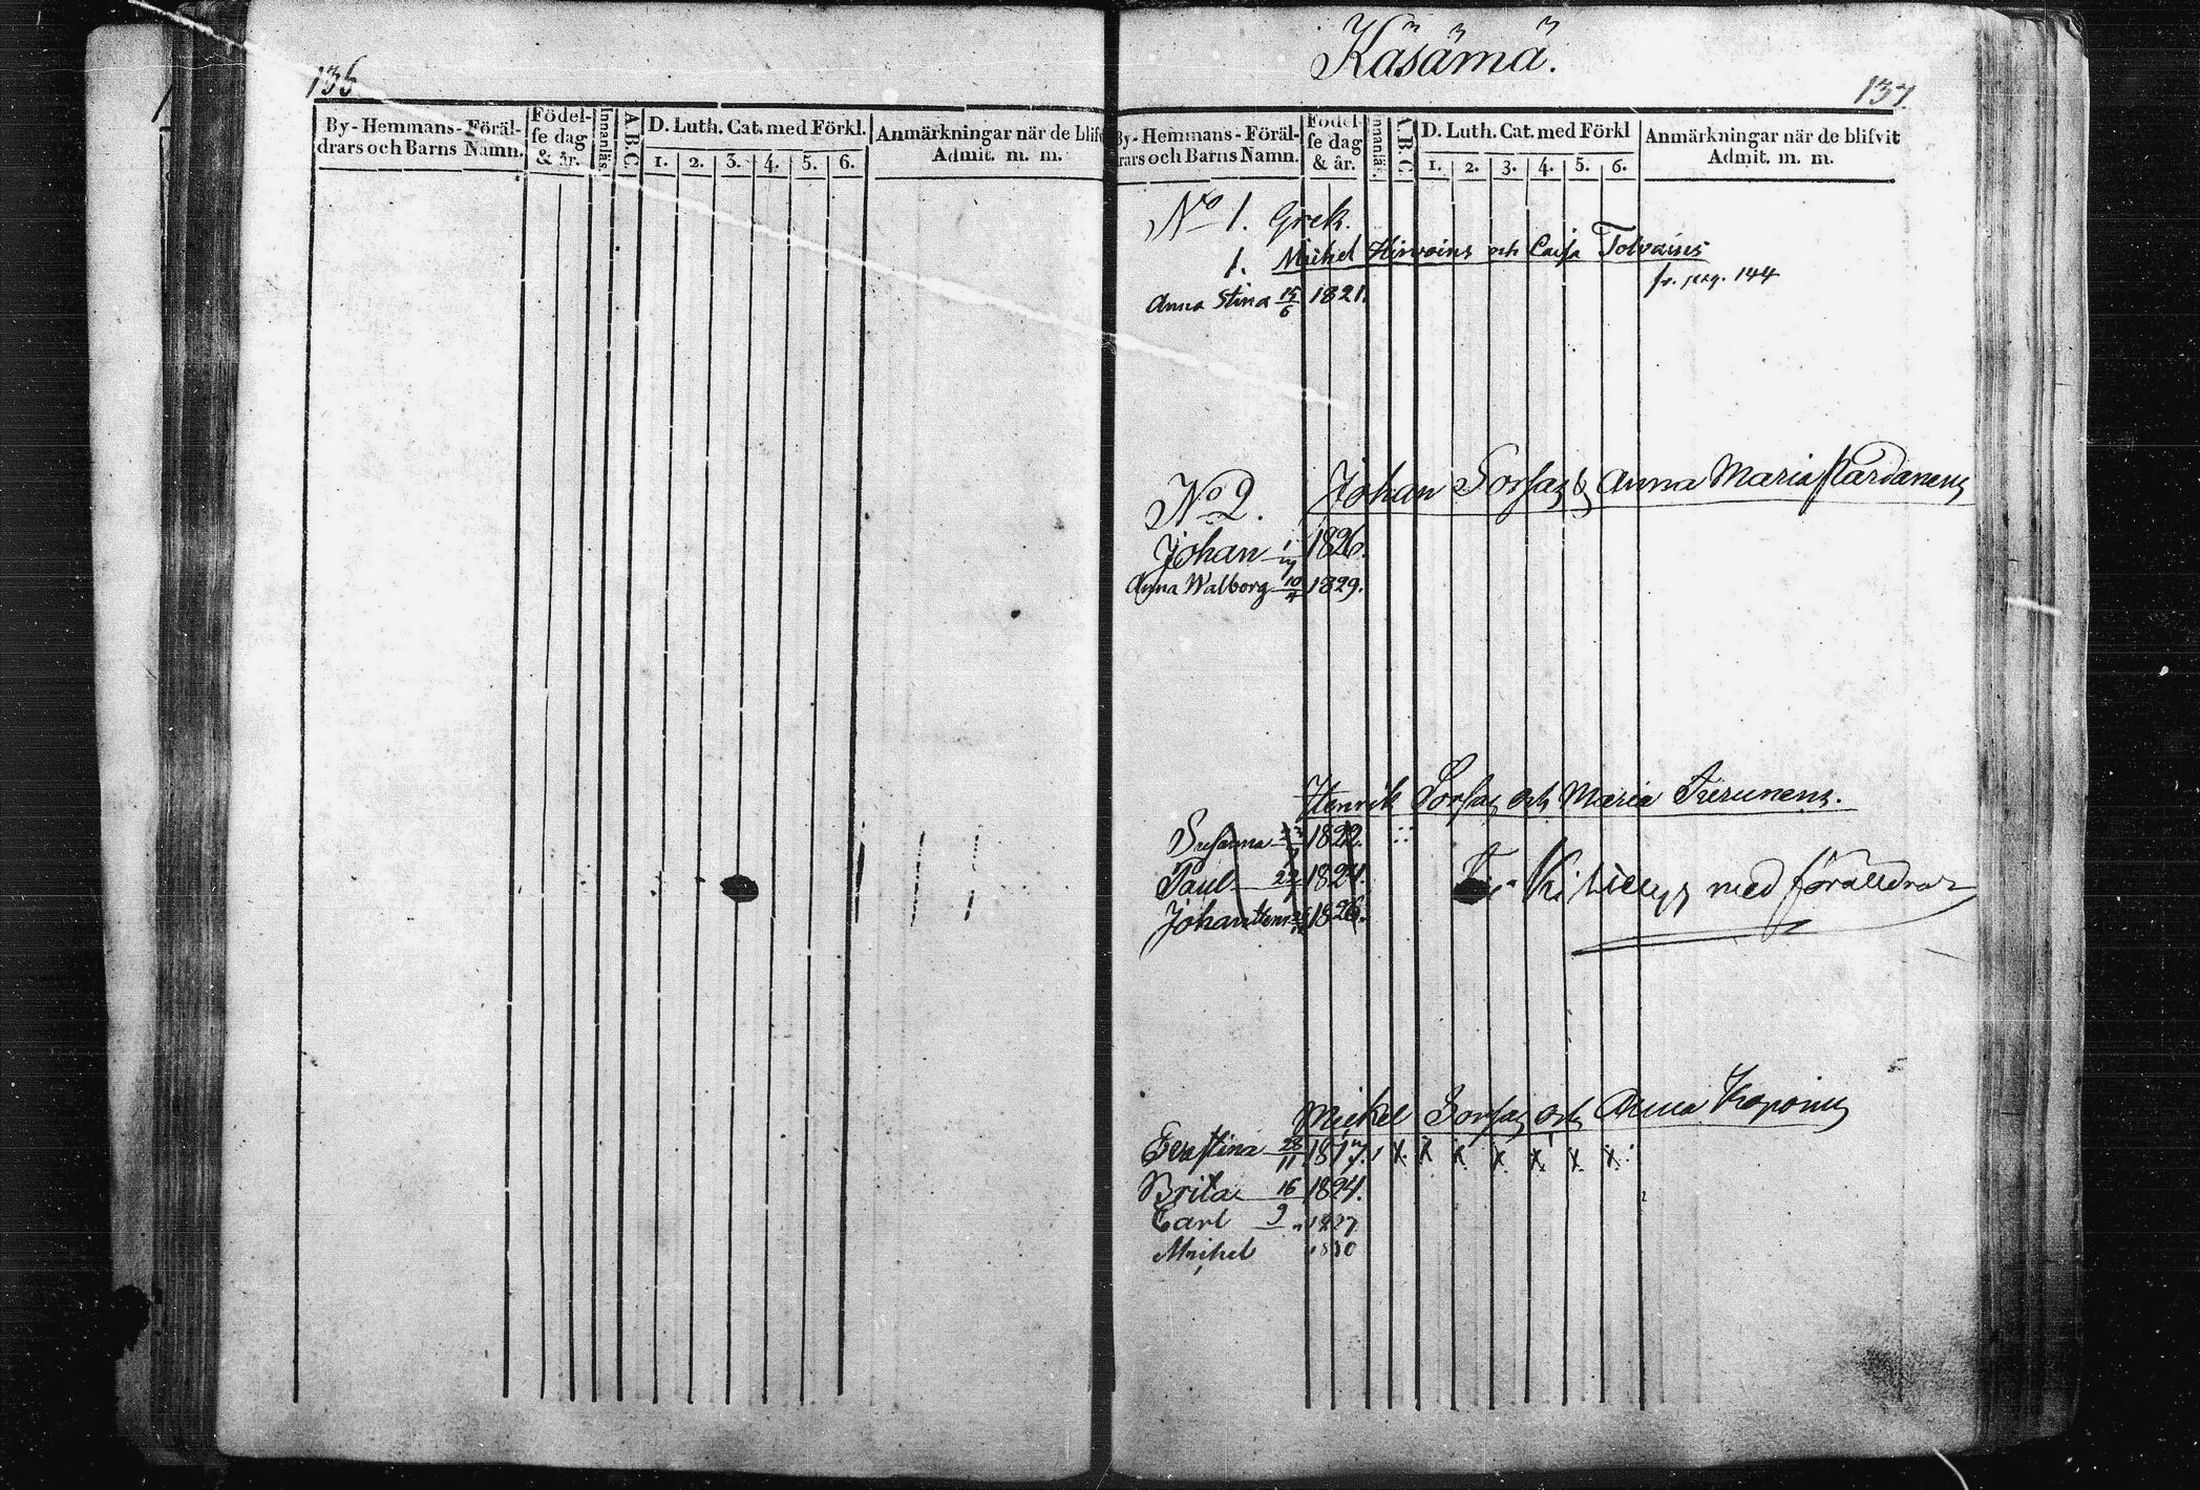 136
By-Hemmans-Föräl-
drars och Barns Namn.
Födel-
se dag
& år.
Innanläs.
A.B.C.
D. Luth. Cat. med Förkl.
1. 2. 3. 4. 5. 6.
Anmärkningar när de blifv
Admit. m. m.
Käsämä.
137.
By-Hemmans-Föräl-
rars och Barns Namn.
Födel-
se dag
& år.
Innanläs.
A.B.C.
D. Luth. Cat. med Förkl
1. 2. 3. 4. 5. 6.
Anmärkningar när de blifvit
Admit. m. m.
No 1. Grek.
1. Michel Hirvoins och Caisa Tolvains
fr. pag. 144
Anna Stina 15/6 1821.
No 2. Johan Sorsas & Anna Maria
Johan 1826.
Anna Walborg 10/4 1829.
Henrik Sorsas och Maria Turunens.
Susanna 1822.
Paul 1824. med föräldrar
Johan Hen 1826.
Michel Sorsas och Anna
28/11 181 x x x x x x x
Brita 16 1824.
Carl 9 1827
Michel 1830